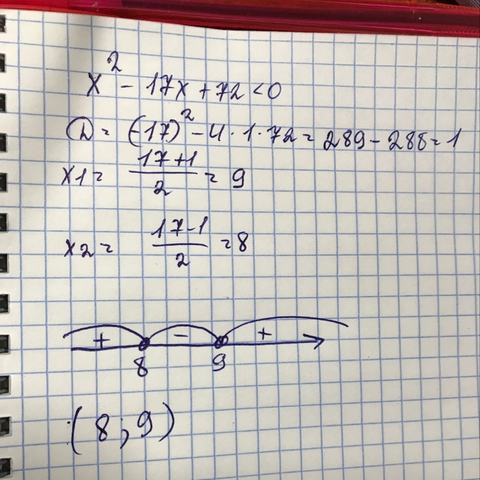 x² - 17x + 72 < 0
D = (-17)² - 4 · 1 · 72 = 289 - 288 = 1
x1 = (17+1)/2 = 9
x2 = (17-1)/2 = 8
+ - +
8 9
(8; 9)